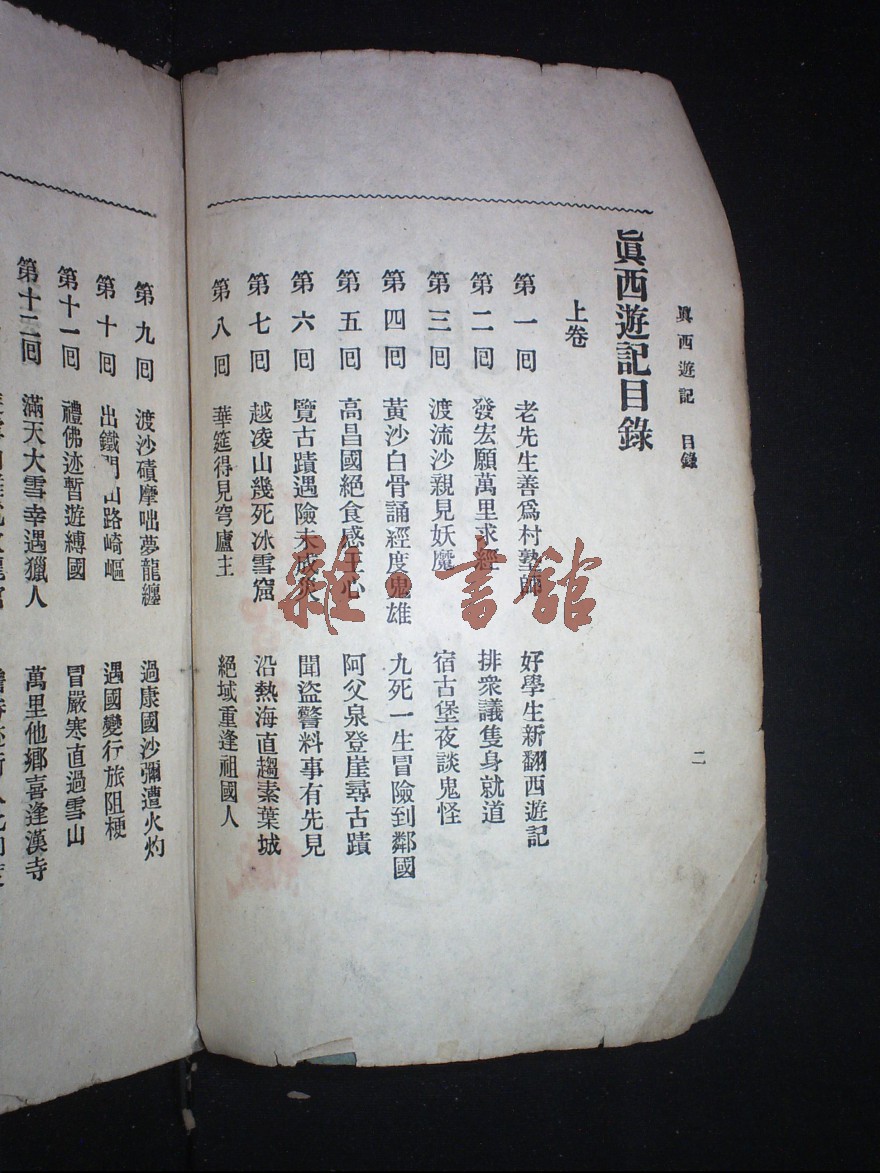 眞西遊記　目錄
二
眞西遊記目錄
上卷
第一囘　老先生善爲村塾師　好學生新翻西遊記
第二囘　發宏願萬里求經　排衆議隻身就道
第三囘　渡流沙親見妖魔　宿古堡夜談鬼怪
第四囘　黃沙白骨誦經度鬼雄　九死一生冒險到鄰國
第五囘　高昌國絕食感王心　阿父泉登崖尋古蹟
第六囘　覽古蹟遇險未成災　聞盜警料事有先見
第七囘　越凌山幾死冰雪窟　沿熱海直趨素葉城
第八囘　華筵得見穹廬主　絕域重逢祖國人
第九囘　渡沙磧摩咄夢龍纏　過康國沙彌遭火灼
第十囘　出鐵門山路崎嶇　遇國變行旅阻梗
第十一囘　禮佛迹暫遊縛國　冒嚴寒直過雪山
第十二囘　滿天大雪幸遇獵人　萬里他鄉喜逢漢寺
雜·書館